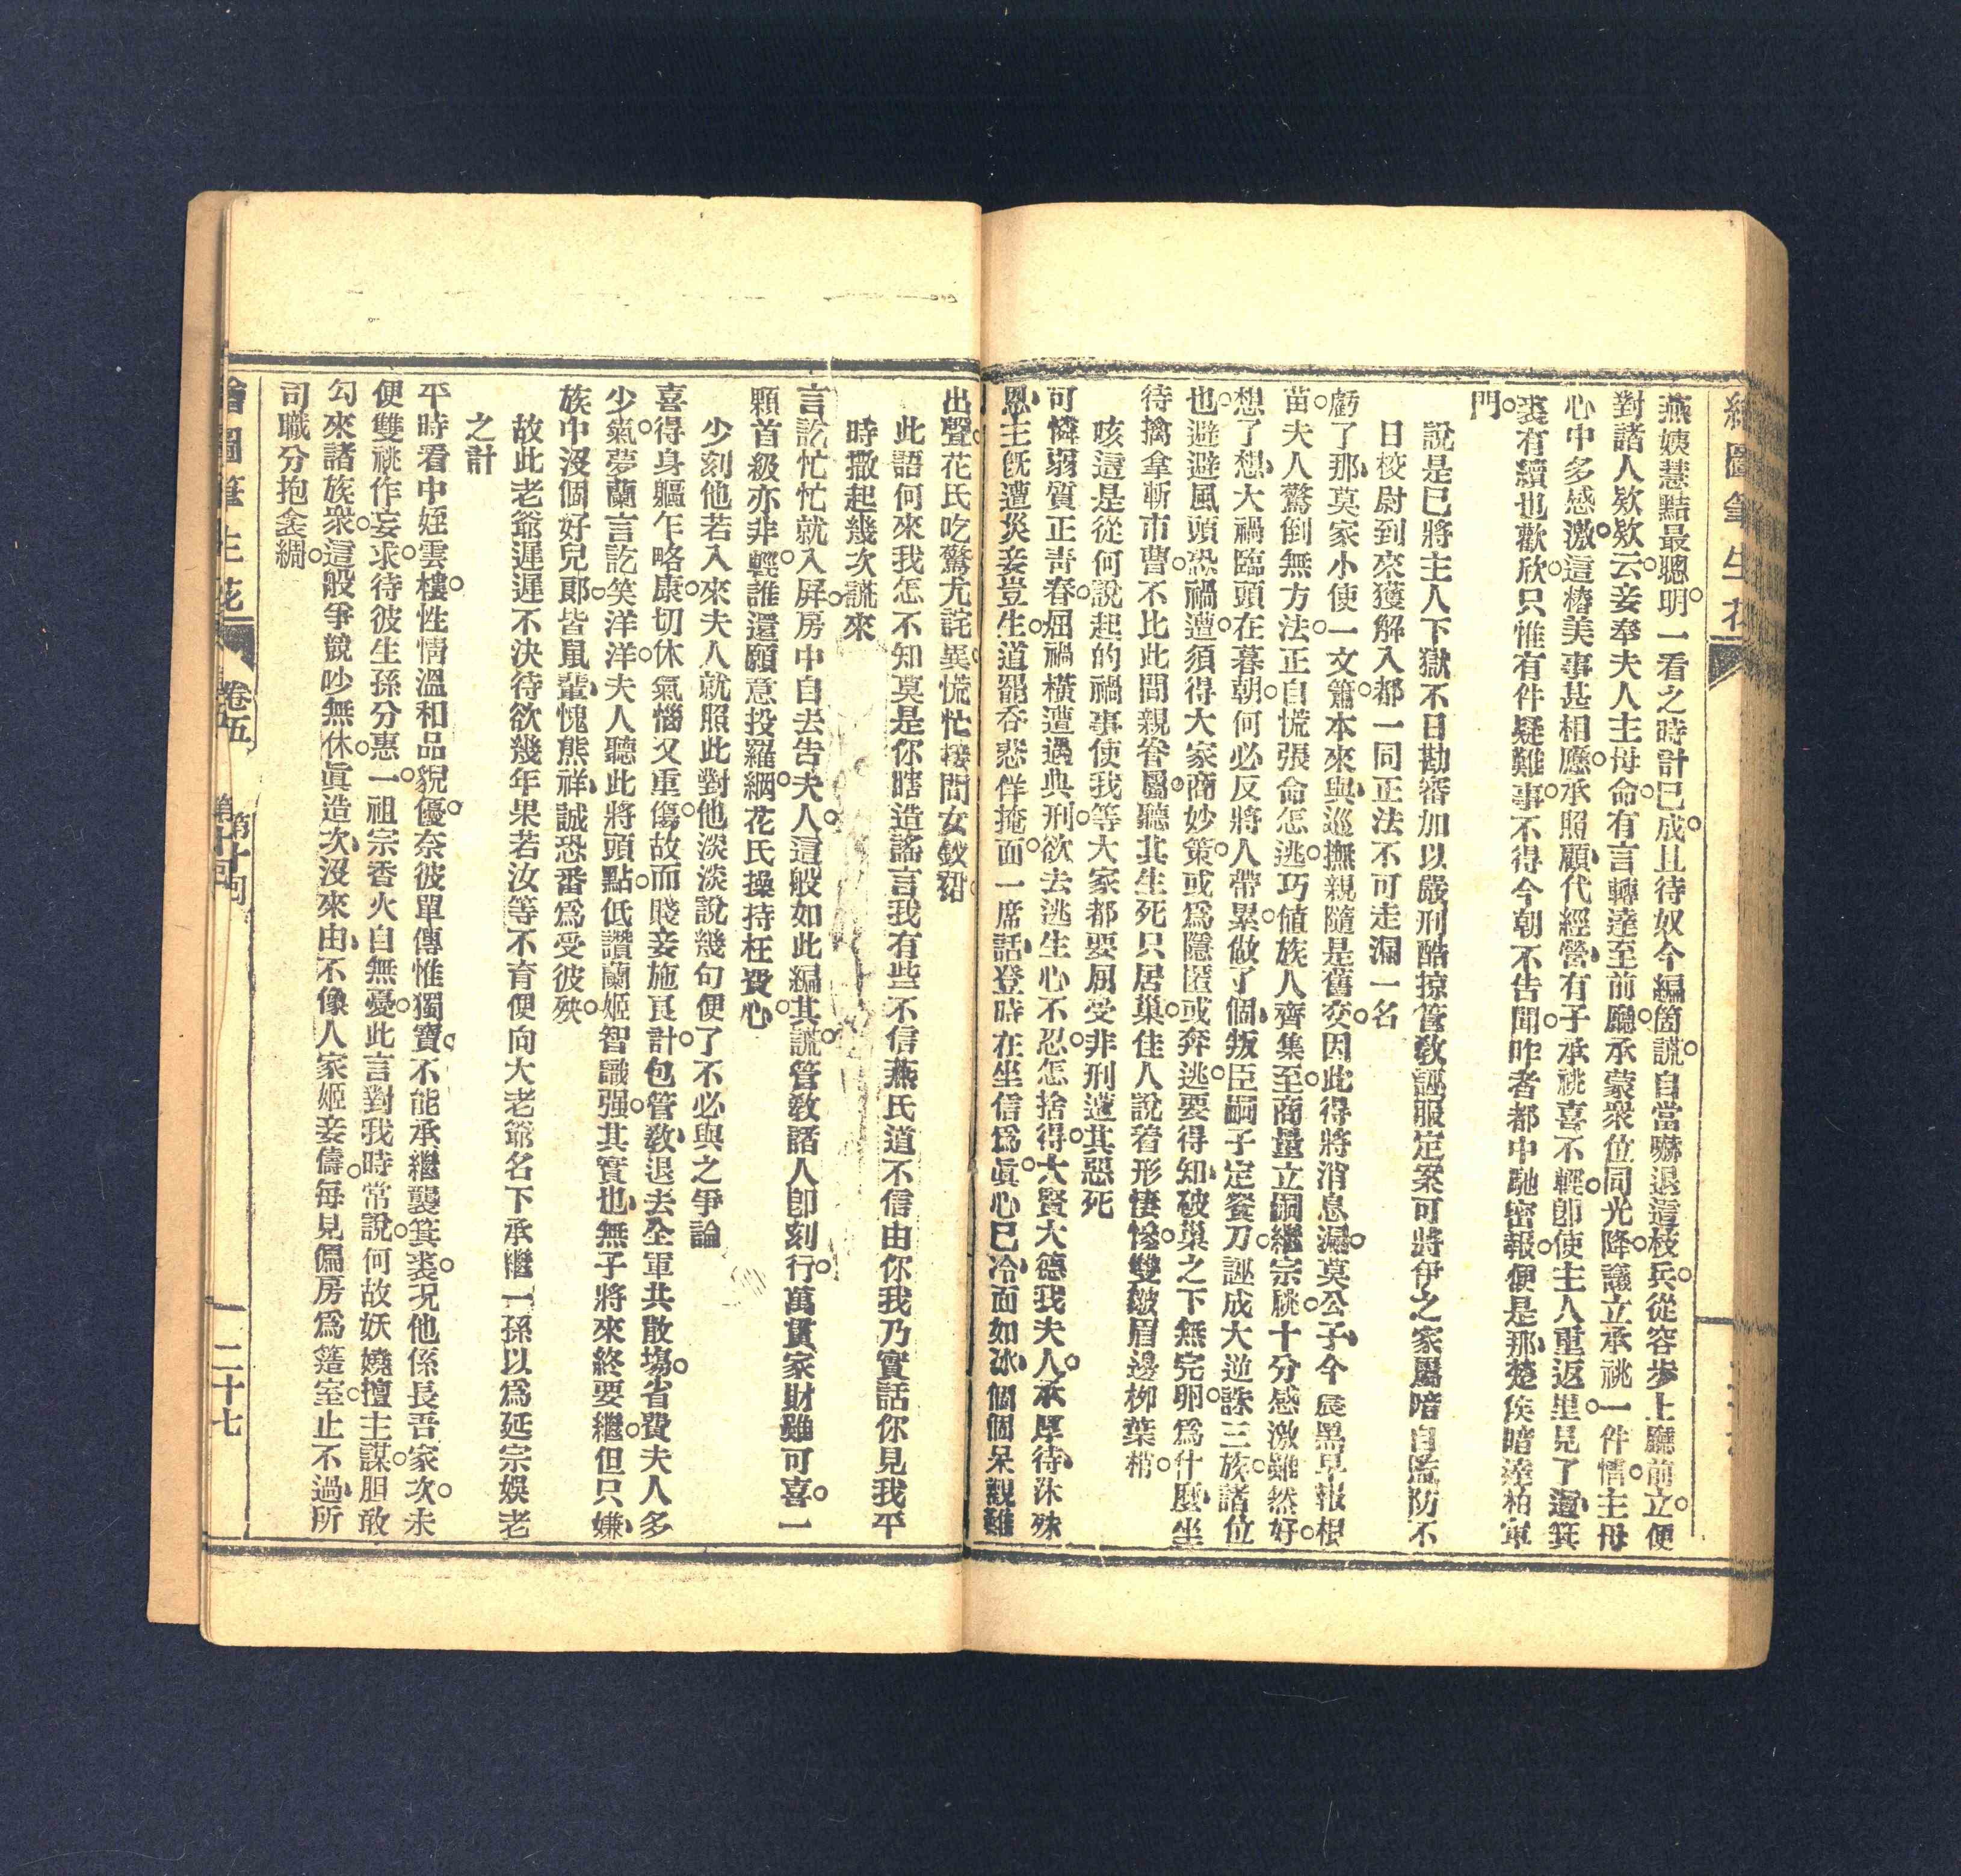 繪圖筆生花
燕姨慧黠最聰明。一看之時計已成。且待奴今編箇謊。自當嚇退這枝兵。從容步上廳前立。便
對諸人欵欵云。妾奉夫人主母命。有言轉達至前廳。承蒙衆位同光降。議立承祧一件情。主母
心中多感激。這樁美事甚相應。承照顧代經營。有子承祧喜不輕。卽使主人重返里。見了這箕
裘有續也歡欣。只惟有件疑難事。不得今朝不告聞。昨者都中馳密報。便是那楚侯暗達柏軍
門。
說是已將主人下獄不日勘審加以嚴刑酷掠管敎誣服定案可將伊之家屬暗自監防不
日校尉到來獲解入都一同正法不可走漏一名
虧了那莫家小使一文簫。本來與巡撫親隨是舊交。因此得將消息漏。莫公子今晨黑早報根
苗。夫人驚倒無方法。正自慌張命怎逃。巧値族人齊集至。商量立嗣繼宗祧。十分感激雖然好。
想了想大禍臨頭在暮朝。何必反將人帶累。做了個叛臣嗣子定餐刀。誣成大逆誅三族。諸位
也。避避風頭恐禍遭。須得大家商妙策。或爲隱匿或奔逃。要得知破巢之下無完卵。爲什麼坐
待擒拿斬市曹。不比此間親眷屬。聽其生死只居巢。佳人說着形悽慘。雙皺眉邊柳葉梢。
咳這是從何說起的禍事使我等大家都要屈受非刑遭其惡死
可憐弱質正靑春。屈禍橫遭遇典刑。欲去逃生心不忍。怎捨得大賢大德我夫人。承厚待沐殊
恩。主旣遭災妾豈生。道罷呑悲佯掩面。一席話登時在坐信爲眞。心已冷面如冰。個個呆觀難
出聲。花氏吃驚尤詫異。慌忙接問女釵裙。
此語何來我怎不知莫是你瞎造謠言我有些不信燕氏道不信由你我乃實話你見我平
時撒起幾次謊來
言訖忙忙就入屛。房中自去告夫人。這般如此編其謊。管敎諸人卽刻行。萬貫家財雖可喜。一
顆首級亦非輕。誰還願意投羅網。花氏操持枉費心。
少刻他若入來夫人就照此對他淡淡說幾句便了不必與之爭論
喜得身軀乍略康。切休氣惱又重傷。故而賤妾施良計。包管敎退去全軍共散塲。省費夫人多
少氣。夢蘭言訖笑洋洋。夫人聽此將頭點。低讚蘭姬智識强。其實也無子將來終要繼。但只嫌
族中沒個好兒郞。皆鼠輩愧熊祥。誠恐番爲受彼殃。
故此老爺遲遲不決待欲幾年果若汝等不育便向大老爺名下承繼一孫以爲延宗娛老
之計
平時看中姪雲樓。性情溫和品貌優。奈彼單傳惟獨寶。不能承繼襲箕裘。况他係長吾家次。未
便雙祧作妄求。待彼生孫分惠一。祖宗香火自無憂。此言對我時常說。何故妖嬈擅主謀。胆敢
勾來諸族衆。這般爭競吵無休。眞造次沒來由。不像人家姬妾儔。每見偏房爲簉室。止不過所
司職分抱衾裯。
繪圖筆生花
卷五
第十回
二十七